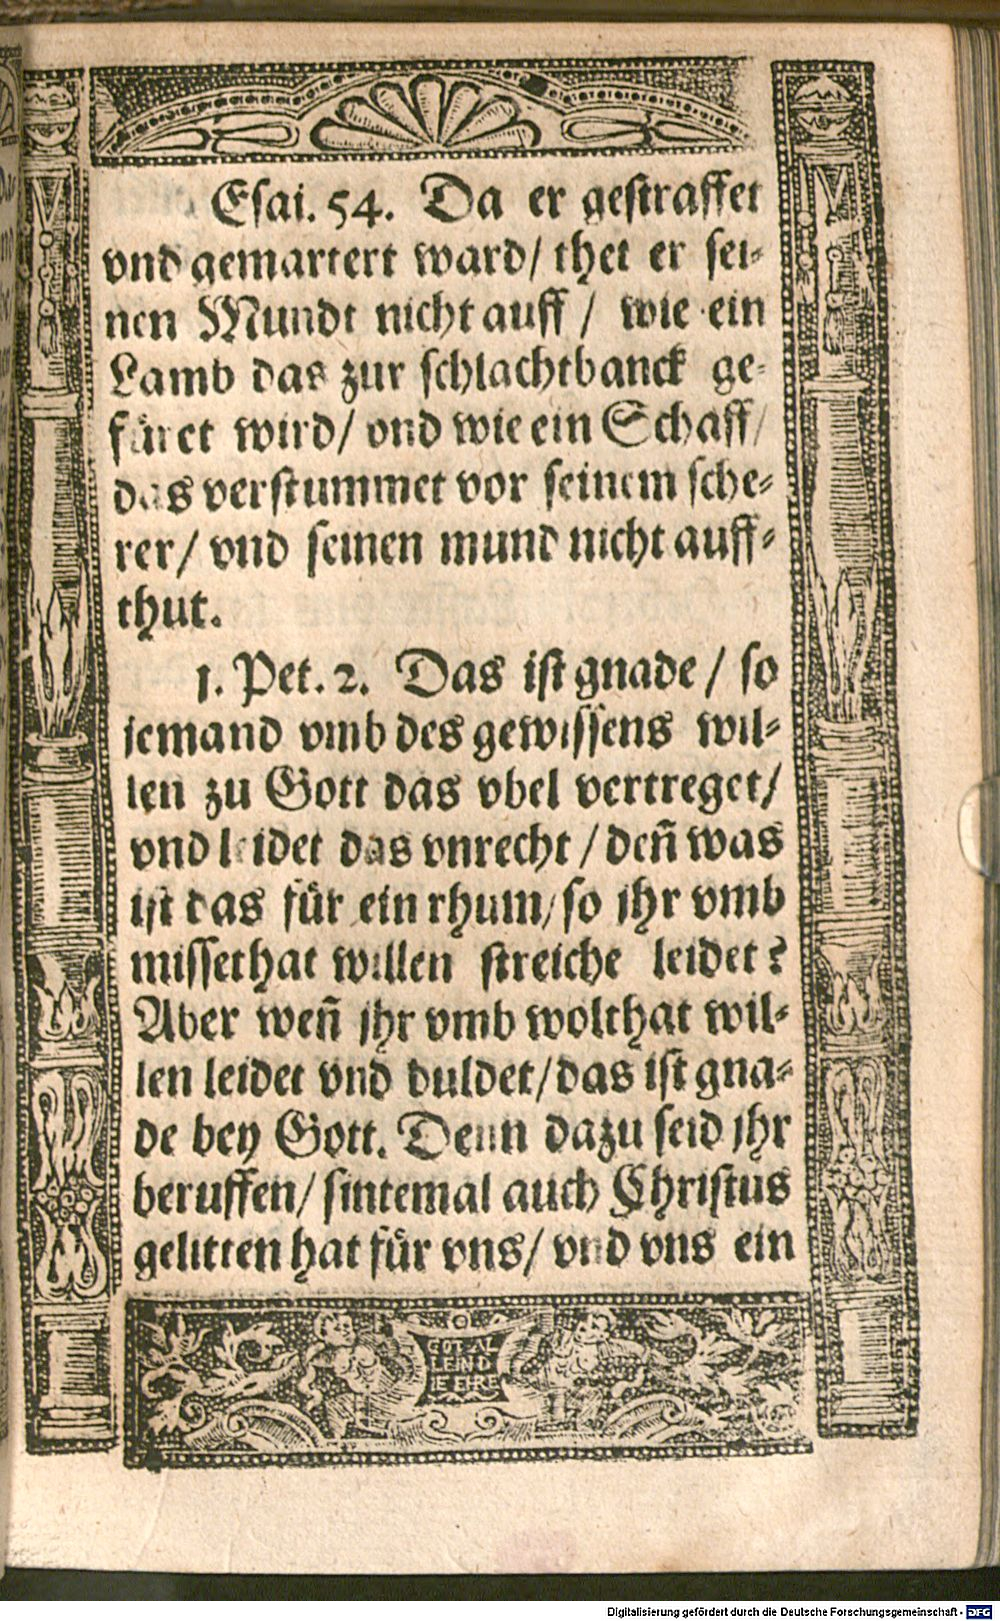 Esai. 54. Da er gestraffet
vnd gemartert ward/ thet er sei-
nen Mundt nicht auff / wie ein
Lamb das zur schlachtbanck ge-
füret wird/ vnd wie ein Schaff/
das verstummet vor seinem sche-
rer/ vnd seinen mund nicht auff-
thut.
1. Pet. 2. Das ist gnade / so
jemand vmb des gewissens wil-
len zu Gott das vbel vertreget/
vnd leidet das vnrecht / deñ was
ist das für ein rhum/ so jhr vmb
missethat willen streiche leidet?
Aber weñ jhr vmb wolthat wil-
len leidet vnd duldet/ das ist gna-
de bey Gott. Denn dazu seid jhr
beruffen/ sintemal auch Christus
gelitten hat für vns/ vnd vns ein
GOT AL
LEIN D
IE EIRE
Digitalisierung gefördert durch die Deutsche Forschungsgemeinschaft - DFG